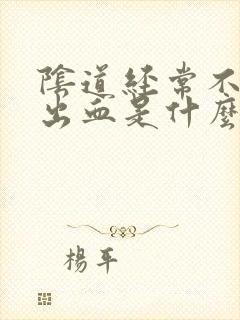 陰道經常不
出血是什麼
楊平